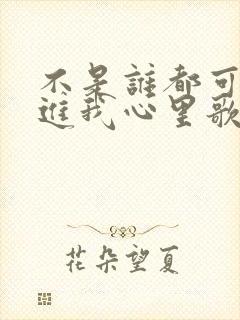 不是谁都可
进我心里歌
花朵望夏